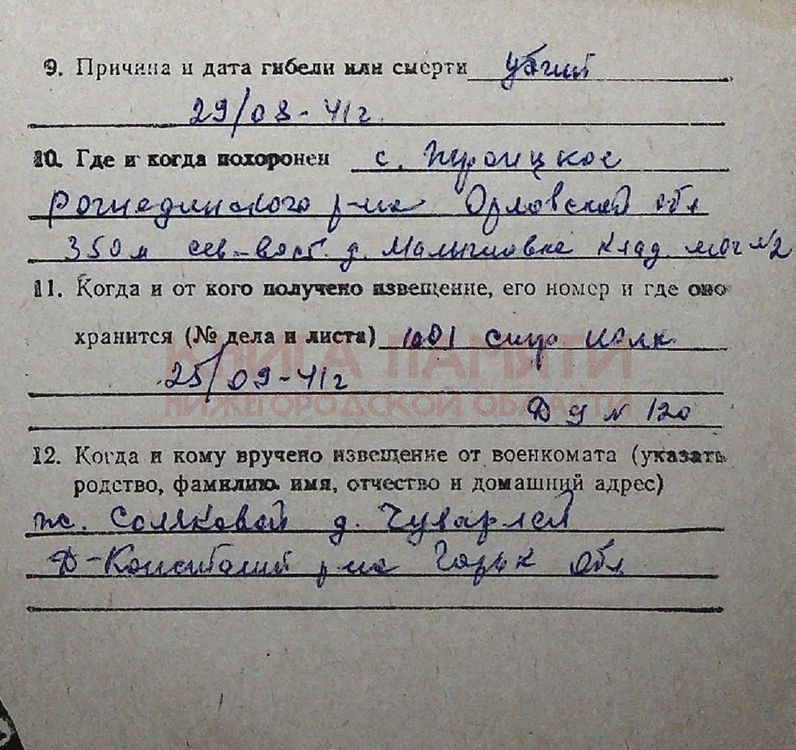 9. Причина и дата гибели или смерти убит
29/08-41г.
10. Где и когда похоронен с. Троицкое
Рогнединского р-на Орловской обл
350м сев-вост. д. Малыгиовка клад. мог №2
11. Когда и от кого получено извещение, его номер и где оно
хранится (№ дела и листа) 1001 стр полк
25/09-41г
КНИГА ПАМЯТИ
НИЖЕГОРОДСКОЙ ОБЛАСТИ
Д 9 № 120
12. Когда и кому вручено извещение от военкомата (указать
родство, фамилию, имя, отчество и домашний адрес)
ж. Соляковой д. Чуварлей
Д-Констатий р-на Горьк обл